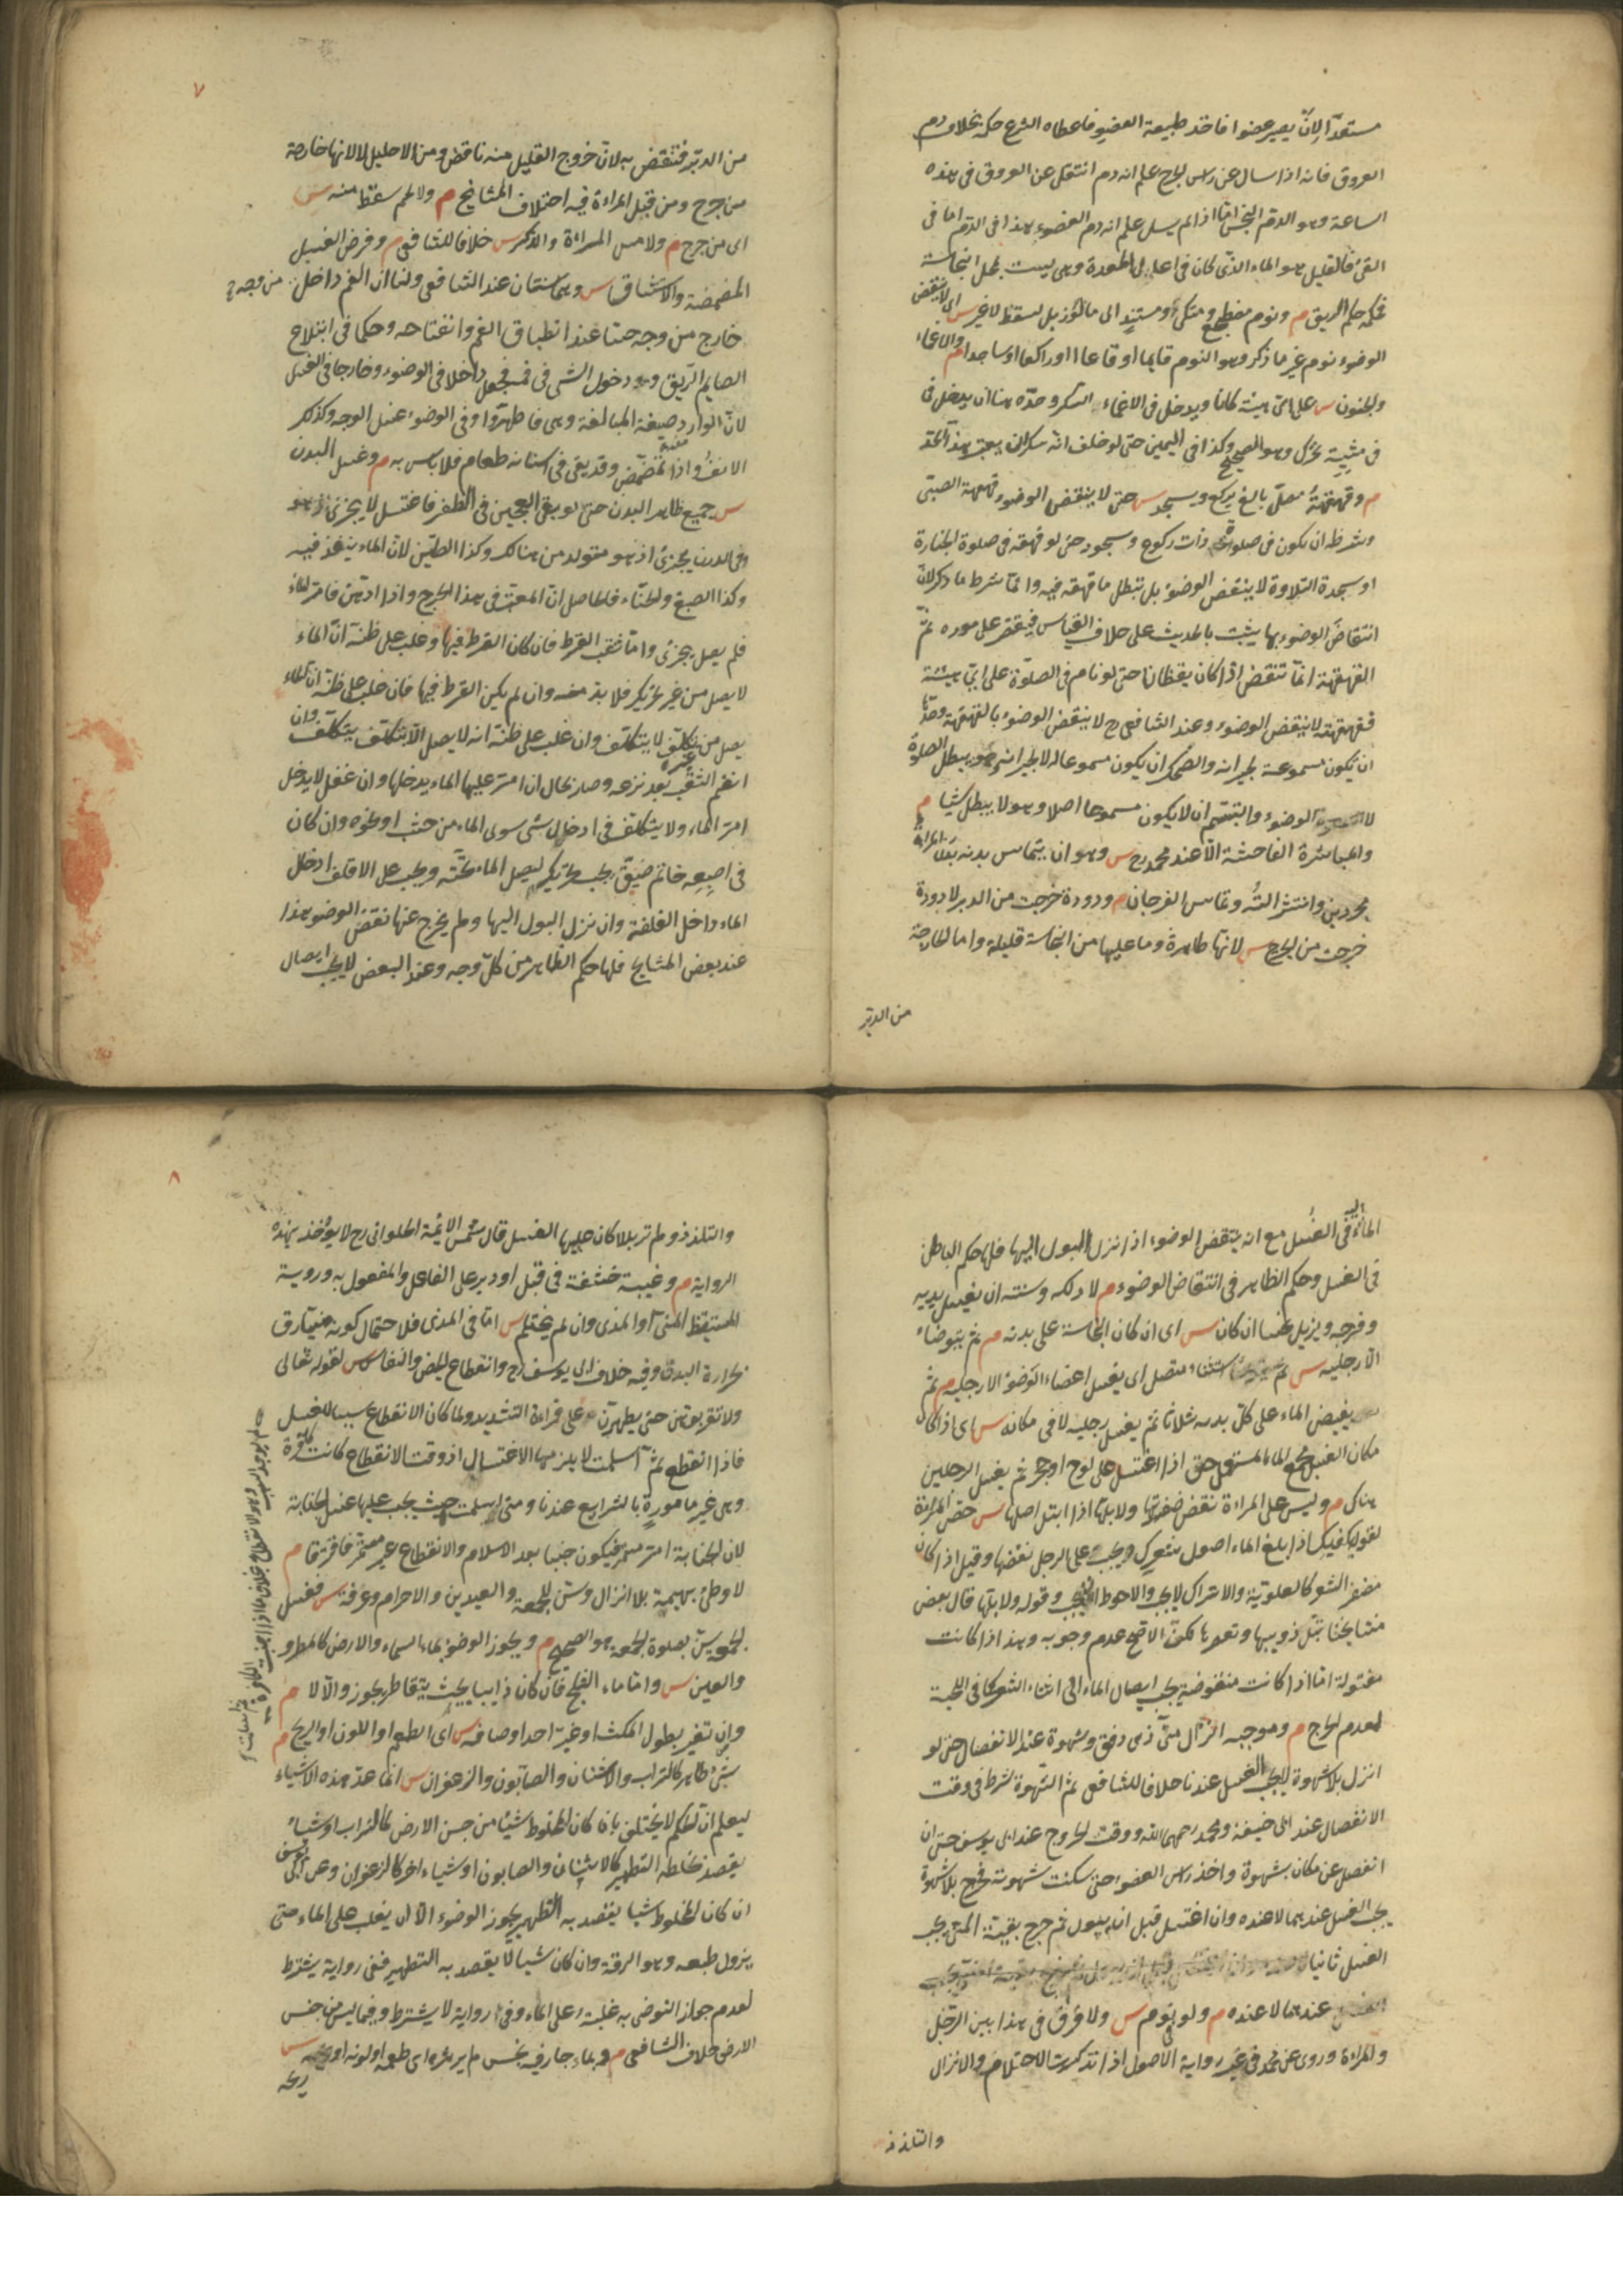 مستعدّا لان يصير عضوا فاخذ طبيعة العضو فاعطاه الشرع حكمه بخلاف دم
العروق فانه اذا سال عن راس الجرح علم انه دم انتقل عن العروق فى هذه
الساعة وهو الدم النجس اما اذا لم يسل علم انه دم العضو هذا فى الدم اما فى
القئ فالقليل هو الماء الذى كان فى اعلى المعدة وهى ليست محل النجاسة
فحكمه حكم الريق م ونوم مضطجع ومتكئ ومستند الى ما لو ازيل لسقط لا غير س اى لا ينقض
الوضوء نوم غير ما ذكر وهو النوم قايما او قاعدا او راكعا او ساجدا م والاغماء
والجنون س على اى هيئة كانا ويدخل فى الاغماء السكر وحدّه هنا ان يدخل فى
فى مشيته تحرك وهو الصحيح وكذا فى اليمين حتى لو حلف انه سكران يعتبر هذا الحد
م وقهقهة مصلّ بالغ يركع ويسجد س حتى لا ينقض الوضوء قهقهة الصبى
وشرطه ان يكون فى صلوة ذات ركوع وسجود حتى لو قهقه فى صلوة الجنازة
او سجدة التلاوة لا ينتقض الوضوء بل تبطل ما قهقه فيه وانما شرط ما ذكر لان
انتقاض الوضوء بها يثبت بالحديث على خلاف القياس فيقتصر على مورده ثم
القهقهة انما تنقض اذا كان يقظانا حتى لو نام فى الصلوة على اى هيئة
فقهقهته لا ينقض الوضوء وعند الشافعى رح لا ينقض الوضوء بالقهقهة وحدّها
ان يكون مسموعة لجيرانه والضحك ان يكون مسموعا له لا لجيرانه وهو يبطل الصلوة
لا الوضوء والتبسم ان لا يكون مسموعا اصلا وهو لا يبطل شيا م
والمباشرة الفاحشة الا عند محمد رح س وهو ان يتماس بدنه بدن المراة
مجردين وانتشر آلته وتماس الفرجان م ودودة خرجت من الدبر لا دودة
خرجت من الجرح س لانها طاهرة وما عليها من النجاسة قليلة واما الخارجة
من الدبر
٧
من الدبر فتنقض به لان خروج القليل منه ناقض ومن الاحليل لا لانها خارجة
من جرح ومن قبل المراءة فيه اختلاف المشايخ م ولا لحم سقط منه س
اى من جرح م ولا مس المراءة والذكر س خلافا للشافعى م وفرض الغسل
المضمضة والاستنشاق س وهما سنتان عند الشافعى ولنا ان الفم داخل من وجه و
خارج من وجه حسّا عند انطباق الفم وانفتاحه وحكما فى ابتلاع
الصايم الريق ودخول الشى فى فمه فجعل داخلا فى الوضوء وخارجا فى الغسل
لان الوارد صيغة المبالغة وهى فاطهّروا وفى الوضوء غسل الوجه وكذلك
الانف واذا تمضمض وقد بقى فى اسنانه طعام فلا باس به م وغسل البدن
س جميع ظاهر البدن حتى لو بقى العجين فى الظفر فاغتسل لا يجزى
وفى الدرن يجزئ اذ هو متولد من هنالك وكذا الطين لان الماء ينفذ فيه
وكذا الصبغ والحناء فالحاصل ان المعتبر فى هذا الحرج واذا ادّهن فامر الماء
فلم يصل يجزئ واما ثقب القرط فان كان القرط فيها وغلب على ظنه ان الماء
لا يصل من غير تحريك فلا بد منه وان لم يكن القرط فيها فان غلب على ظنه ان الماء
يصل من غير تكلّف لا يتكلف وان غلب على ظنه انه لا يصل الا بتكلف يتكلف وان
انضم الثقب بعد نزعه وصار بحال ان امرّ عليها الماء يدخلها وان غفل لا يدخل
امرّ الماء ولا يتكلف فى ادخال شى سوى الماء من خشب او نحوه وان كان
فى اصبعه خاتم ضيق يجب تحريكه ليصل الماء تحته ويجب على الاقلف ادخال
الماء داخل القلفة وان نزل البول اليها ولم يخرج عنها نقض الوضوء هذا
عند بعض المشايخ فلها حكم الظاهر من كل وجه وعند البعض لا يجب ايصال
الماء اليها فى الغسل مع انه ينتقض الوضوء اذا نزل البول اليها فلها حكم الباطن
فى الغسل وحكم الظاهر فى انتقاض الوضوء م لا دلكه وسنته ان يغسل يديه
وفرجه ويزيل نجسا ان كان س اى ان كان النجاسة على بدنه م ثم يتوضاء
الا رجليه س استثناء متصل اى يغسل اعضاء الوضوء الا رجليه م ثم
يفيض الماء على كل بدنه ثلاثا ثم يغسل رجليه لا فى مكانه س اى اذا كان
مكان الغسل مجمع الماء المستعمل حتى اذا اغتسل على لوح او حجر ثم يغسل الرجلين
هناك م وليس على المراءة نقض ضفيرتها ولا بلها اذا ابتل اصلها س خص المراءة
لقوله يكفيك اذا بلغ الماء اصول شعرك ويجب على الرجل نقضها وقيل اذا كان
مضفر الشعر كالعلوية والاتراك لا يجب والاحوط ان يجب وقوله ولا بلها قال بعض
مشايخنا تبل ذوايبها وتعصرها لكن الاصح عدم وجوبه وهذا اذا كانت
مفتولة اما اذا كانت منقوضة يجب ايصال الماء الى اثناء الشعر كما فى اللحية
لعدم الحرج م وموجبه انزال منىّ ذى دفق وشهوة عند الانفصال حتى لو
انزل بلا شهوة لا يجب الغسل عندنا خلافا للشافعى ثم الشهوة شرط فى وقت
الانفصال عند ابى حنيفة ومحمد رحمهما الله ووقت الخروج عند ابى يوسف حتى ان
انفصل عن مكانه بشهوة واخذ راس العضو حتى سكنت شهوته فخرج بلا شهوة
يجب الغسل عندهما لا عنده وان اغتسل قبل ان يبول ثم خرج بقية المنى يجب
الغسل ثانيا
عندهما لا عنده م ولو فى نوم س ولا فرق فى هذا بين الرجل
والمراءة وروى عن محمد فى غير رواية الاصول اذا تذكرت الاحتلام والانزال
والتلذذ
٨
والتلذذ ولم تر بللا كان عليها الغسل قال شمس الائمة الحلوانى رح لا يؤخذ بهذه
الرواية م وغيبة حشفة فى قبل او دبر على الفاعل والمفعول به وروية
المستيقظ المنى او المذى وان لم يحتلم س اما فى المذى فلاحتمال كونه منيا رق
بحرارة البدن وفيه خلاف ابى يوسف رح وانقطاع الحيض والنفاس س لقوله تعالى
ولا تقربوهن حتى يطهرن على قراءة التشديد ولما كان الانقطاع سببا للغسل
فاذا انقطع ثم اسلمت لا يلزمها الاغتسال اذ وقت الانقطاع كانت كافرة
وهى غير مامورة بالشرايع عندنا ومتى اسلمت حيث يجب عليها غسل الجنابة
لان الجنابة امر مستمر فيكون جنبا بعد الاسلام والانقطاع غير مستمر فافترقا م
لا وطئ بهيمة بلا انزال وسن للجمعة والعيدين والاحرام وعرفة س فغسل
الجمعة سن لصلوة الجمعة هو الصحيح م ويجوز الوضوء بماء السماء والارض كالمطر و
والعين س واما ماء الثلج فان كان ذايبا بحيث يتقاطر يجوز والا لا م
وان تغير بطول المكث او غيّر احد اوصافه س اى الطعم او اللون او الريح م
شئ طاهر كالتراب والاشنان والصابون والزعفران س انما عد هذه الاشياء
ليعلم ان الحكم لا يختلف بان كان المخلوط شيئا من جنس الارض كالتراب او شياء
يقصد بخلطه التطهير كالاشنان والصابون او شياء اخر كالزعفران وعن ابى يوسف
ان كان المخلوط شيا يقصد به التطهير يجوز الوضوء الا ان يغلب على الماء حتى
يزول طبعه وهو الرقة وان كان شيا لا يقصد به التطهير ففى رواية يشترط
لعدم جواز التوضى به غلبته على الماء وفى رواية لا يشترط وفيما ليس من جنس
الارض خلاف الشافعى م وبماء جار فيه نجس لم ير اثره اى طعمه او لونه او س
ريحه